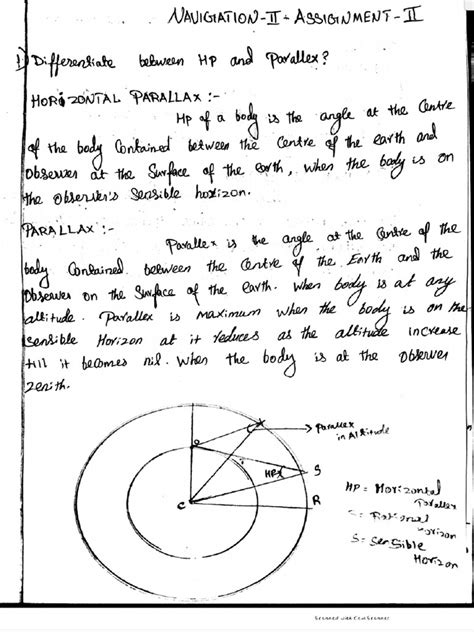 NAVIGATION-II - ASSIGNMENT-II
1) Differentiate between HP and Parallex?
HORIZONTAL PARALLAX :-
HP of a body is the angle at the Centre
of the body Contained between the Centre of the earth and
Observer at the Surface of the earth, when the body is on
the observer's Sensible horizon.
PARALLAX :-
Parallex is the angle at the Centre of the
body Contained between the Centre of the Earth and the
Observer on the Surface of the earth. When body is at any
altitude. Parallex is maximum when the body is on the
Sensible Horizon at it reduces as the altitude increase
till it becomes nil. When the body is at the observer
zenith.
Parallex
in Altitude
O
HP
S
C
R
HP = Horizontal
Parallex
= Rational
Horizon
S = Sensible
Horizon
Scanned with CamScanner